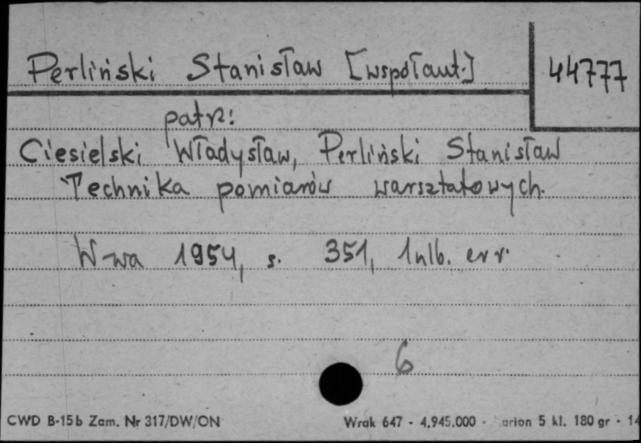 Perliński Stanisław [współaut.] 44777
patrz:
Ciesielski Władysław, Perliński Stanisław
Technika pomiarów warsztatowych.
W-wa 1954, s. 351, 1 nlb. err.
6
CWD B-15b Zam. Nr 317/DW/ON Wrak 647 - 4.945.000 - arion 5 kl. 180 gr - 14